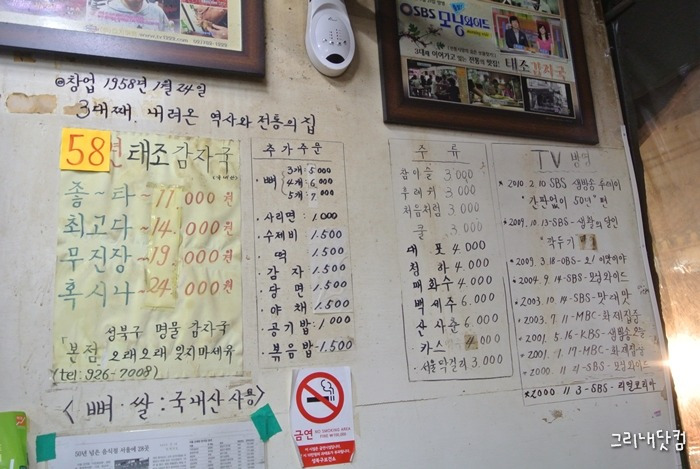 SBS 모닝와이드
3대째 이어가고 있는 전통의 맛집! 태조감자국
@창업 1958년 1월 24일
3대째. 내려온 역사와 전통의 집
58년 태조감자국
좋~타~11.000원
최고다~14.000원
무진장~19.000원
혹시나~24.000원
성북구 명물 감자국
「본점 오래오래 잊지마세유
(tel: 926-7008)
<뼈·쌀:국내산 사용>
추가주문
·뼈 3개:5.000
4개:6.000
5개:7.000
·사리면:1.000
·수제비:1.500
·떡:1.500
·감자:1.500
·당면:1.500
·야채:1.500
·공기밥:1.000
·볶음밥-1.500
주류
참이슬 3.000
후레쉬 3.000
처음처럼 3.000
쿨 3.000
대포 4.000
청하 4.000
매화수 4.000
백세주 6.000
산사춘 6.000
카스 4.000
·서울막걸리 3.000
TV방영
*2010.2.10 SBS-생방송 투데이
"간판없이 50년"편
*2009.10.13-SBS-생활의 달인
"깍두기
*2009.3.18-OBS-오!이맛이야
*2004.9.14-SBS-모닝와이드
*2003.10.14-SBS-맛대맛
*2003.7.11-MBC-화제집중
2001.5.16-KBS-생방송오늘
2001.1.17-MBC-화제집중
*2000.11.21-SBS-모닝와이드
*2000 11 3-SBS-리얼코리아
금연 NO SMOKING AREA
성북구보건소
50년 넘은 음식점 서울에 28곳
그리내닷컴